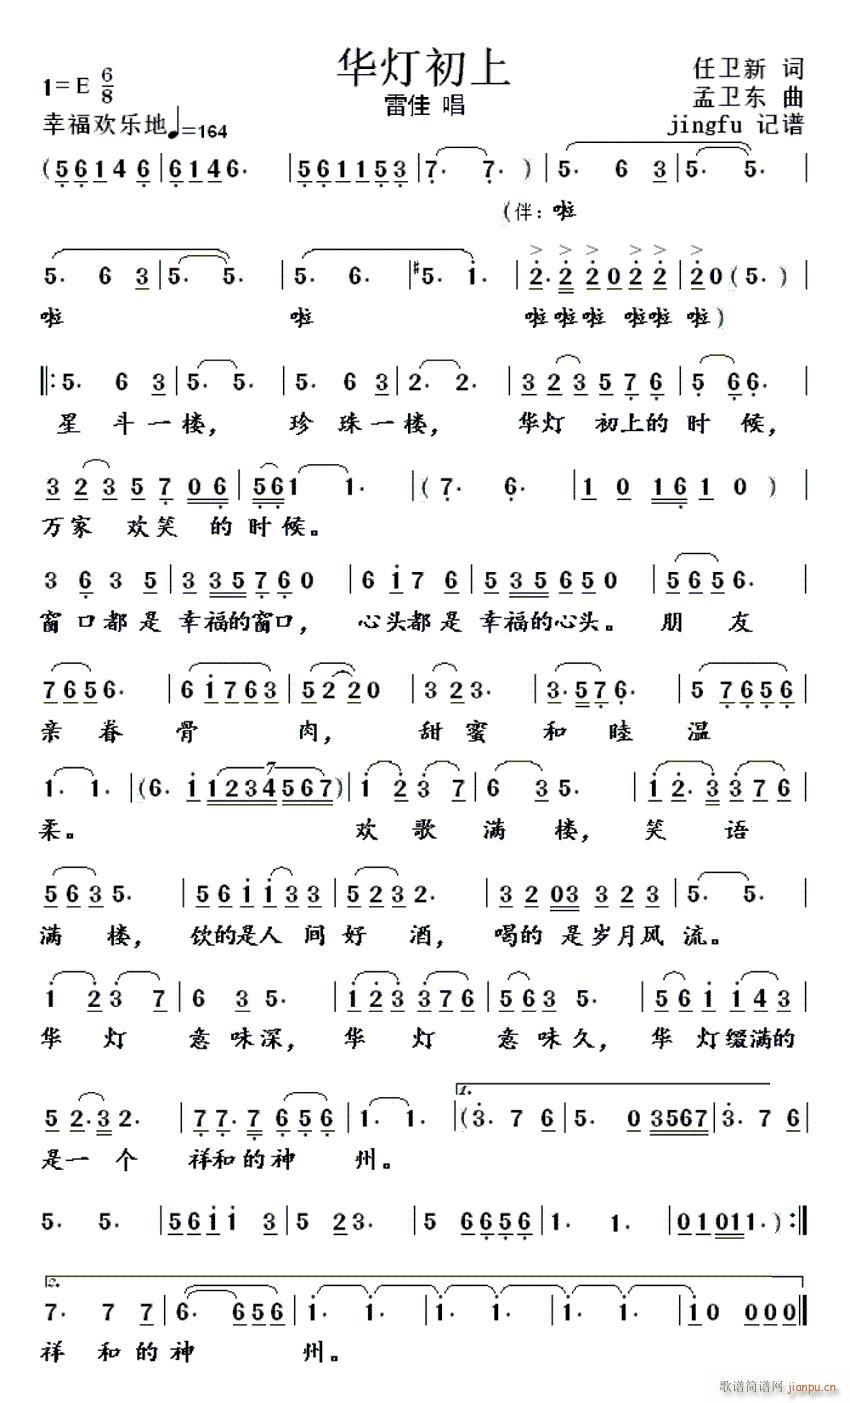 华灯初上
1=E 6/8
任卫新 词
雷佳 唱
孟卫东 曲
幸福欢乐地♩=164
jingfu 记谱
(5 6 1 4 6 | 6 1 4 6· | 5 6 1 1 5 3 | 7· 7· ) | 5· 6 3 | 5· 5· |
(伴：啦
5· 6 3 | 5· 5· | 5· 6· | #5· 1· | 2· 2 2 0 2 2 | 2 0 ( 5· ) |
啦 啦 啦啦啦 啦啦 啦)
‖: 5· 6 3 | 5· 5· | 5· 6 3 | 2· 2· | 3 2 3 5 7 6 | 5 6 6· |
星 斗 一 楼， 珍 珠 一 楼， 华灯 初上的 时 候，
3 2 3 5 7 0 6 | 5 6 1 1· | ( 7· 6· | 1 0 1 6 1 0 ) |
万家 欢笑 的 时 候。
3 6 3 5 | 3 3 5 7 6 0 | 6 1 7 6 | 5 3 5 6 5 0 | 5 6 5 6· |
窗口都是 幸福的窗口， 心头都是 幸福的心头。 朋 友
7 6 5 6· | 6 1 7 6 3 | 5 2 2 0 | 3 2 3· | 3· 5 7 6· | 5 7 6 5 6 |
亲 眷 骨 肉， 甜 蜜 和 睦 温
1· 1· | ( 6· 1 1 2 3 4 5 6 7 ) | 1 2 3 7 | 6 3 5· | 1 2· 3 3 7 6 |
7
柔。 欢 歌 满 楼， 笑 语
5 6 3 5· | 5 6 1 1 3 3 | 5 2 3 2· | 3 2 0 3 3 2 3 | 5· 5· |
满 楼， 饮的是人 间 好 酒， 喝的 是岁月风 流。
1 2 3 7 | 6 3 5· | 1 2 3 3 7 6 | 5 6 3 5· | 5 6 1 1 4 3 |
华 灯 意 味深， 华 灯 意 味久， 华 灯缀满的
1.
5 2· 3 2· | 7 7· 7 6 5 6 | 1· 1· | ( 3· 7 6 | 5· 0 3 5 6 7 | 3· 7 6 |
是一 个 祥和的神 州。
5· 5· | 5 6 1 1 3 | 5 2 3· | 5 6 6 5 6 | 1· 1· | 0 1 0 1 1· ) :‖
2.
7· 7 7 | 6· 6 5 6 | 1· 1· | 1· 1· | 1· 1· | 1 0 0 0 0 ‖
祥 和的神 州。
歌谱简谱网 jianpu.cn